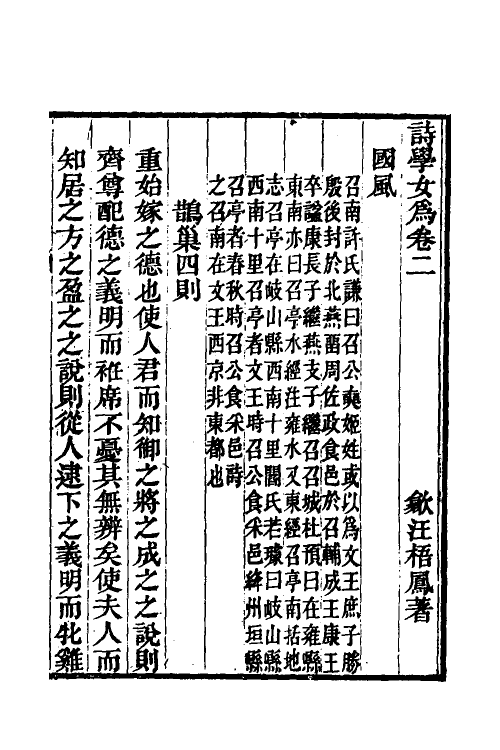 詩學女爲卷二
歙汪梧鳳著
國風
召南許氏謙曰召公奭姬姓或以爲文王庶子勝
殷後封於北燕畱周佐政食邑於召輔成王康王
卒諡康長子繼燕支子繼召召城杜預曰在雍縣
東南亦曰召亭水經注雍水又東經召亭南括地
志召亭在岐山縣西南十里閻氏若璩曰岐山縣
西南十里召亭者文王時召公食采邑絳州垣縣
召亭者春秋時召公食采邑詩
之召南在文王西京非東都也
鵲巢四則
重始嫁之德也使人君而知御之將之成之之說則
齊尊配德之義明而袵席不憂其無辨矣使夫人而
知居之方之盈之之說則從人逮下之義明而牝雞